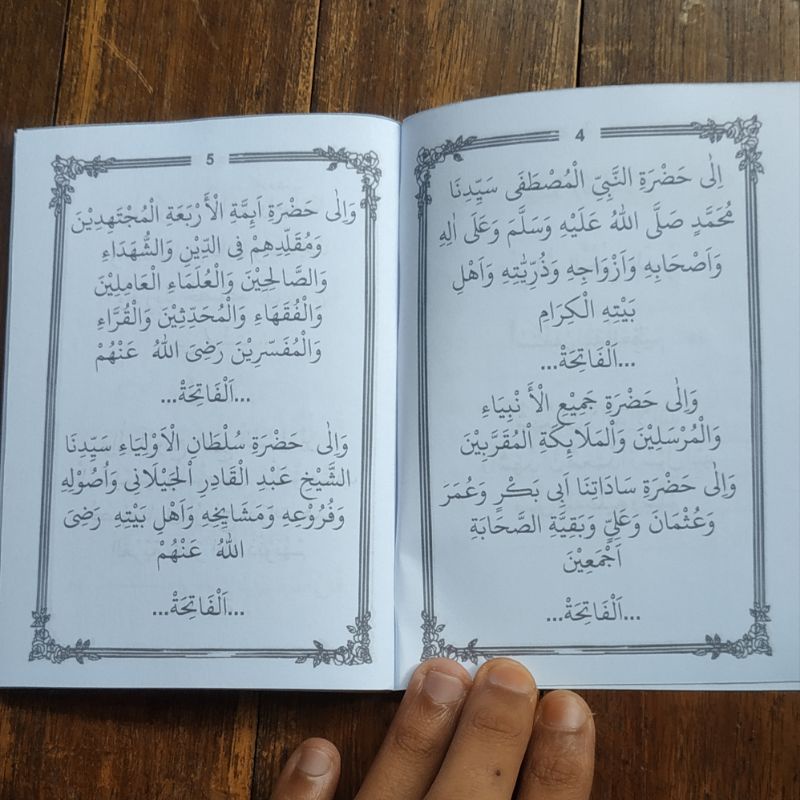 4
اِلٰى حَضْرَةِ النَّبِيِّ الْمُصْطَفَى سَيِّدِنَا
مُحَمَّدٍ صَلَّى اللهُ عَلَيْهِ وَسَلَّمَ وَعَلَى اٰلِهِ
وَاَصْحَابِهِ وَاَزْوَاجِهِ وَذُرِّيَّتِهِ وَاَهْلِ
بَيْتِهِ الْكِرَامِ
...اَلْفَاتِحَةْ...
وَاِلٰى حَضْرَةِ جَمِيْعِ الْأَ نْبِيَاءِ
وَالْمُرْسَلِيْنَ وَالْمَلَائِكَةِ الْمُقَرَّبِيْنَ
وَاِلٰى حَضْرَةِ سَادَاتِنَا اَبِى بَكْرٍ وَعُمَرَ
وَعُثْمَانَ وَعَلِيٍّ وَبَقِيَّةِ الصَّحَابَةِ
اَجْمَعِيْنَ
...اَلْفَاتِحَةْ...
5
وَاِلٰى حَضْرَةِ اَئِمَّةِ الْأَرْبَعَةِ الْمُجْتَهِدِيْنَ
وَمُقَلِّدِهِمْ فِى الدِّيْنِ وَالشُّهَدَاءِ
وَالصَّالِحِيْنَ وَالْعُلَمَاءِ الْعَامِلِيْنَ
وَالْفُقَهَاءِ وَالْمُحَدِّثِيْنَ وَالْقُرَّاءِ
وَالْمُفَسِّرِيْنَ رَضِىَ اللهُ عَنْهُمْ
...اَلْفَاتِحَةْ...
وَاِلٰى حَضْرَةِ سُلْطَانِ الْاَوْلِيَاءِ سَيِّدِنَا
الشَّيْخِ عَبْدِ الْقَادِرِ الْجَيْلَانِى وَاُصُوْلِهِ
وَفُرُوْعِهِ وَمَشَايِخِهِ وَاَهْلِ بَيْتِهِ رَضِىَ
اللهُ عَنْهُمْ
...اَلْفَاتِحَةْ...